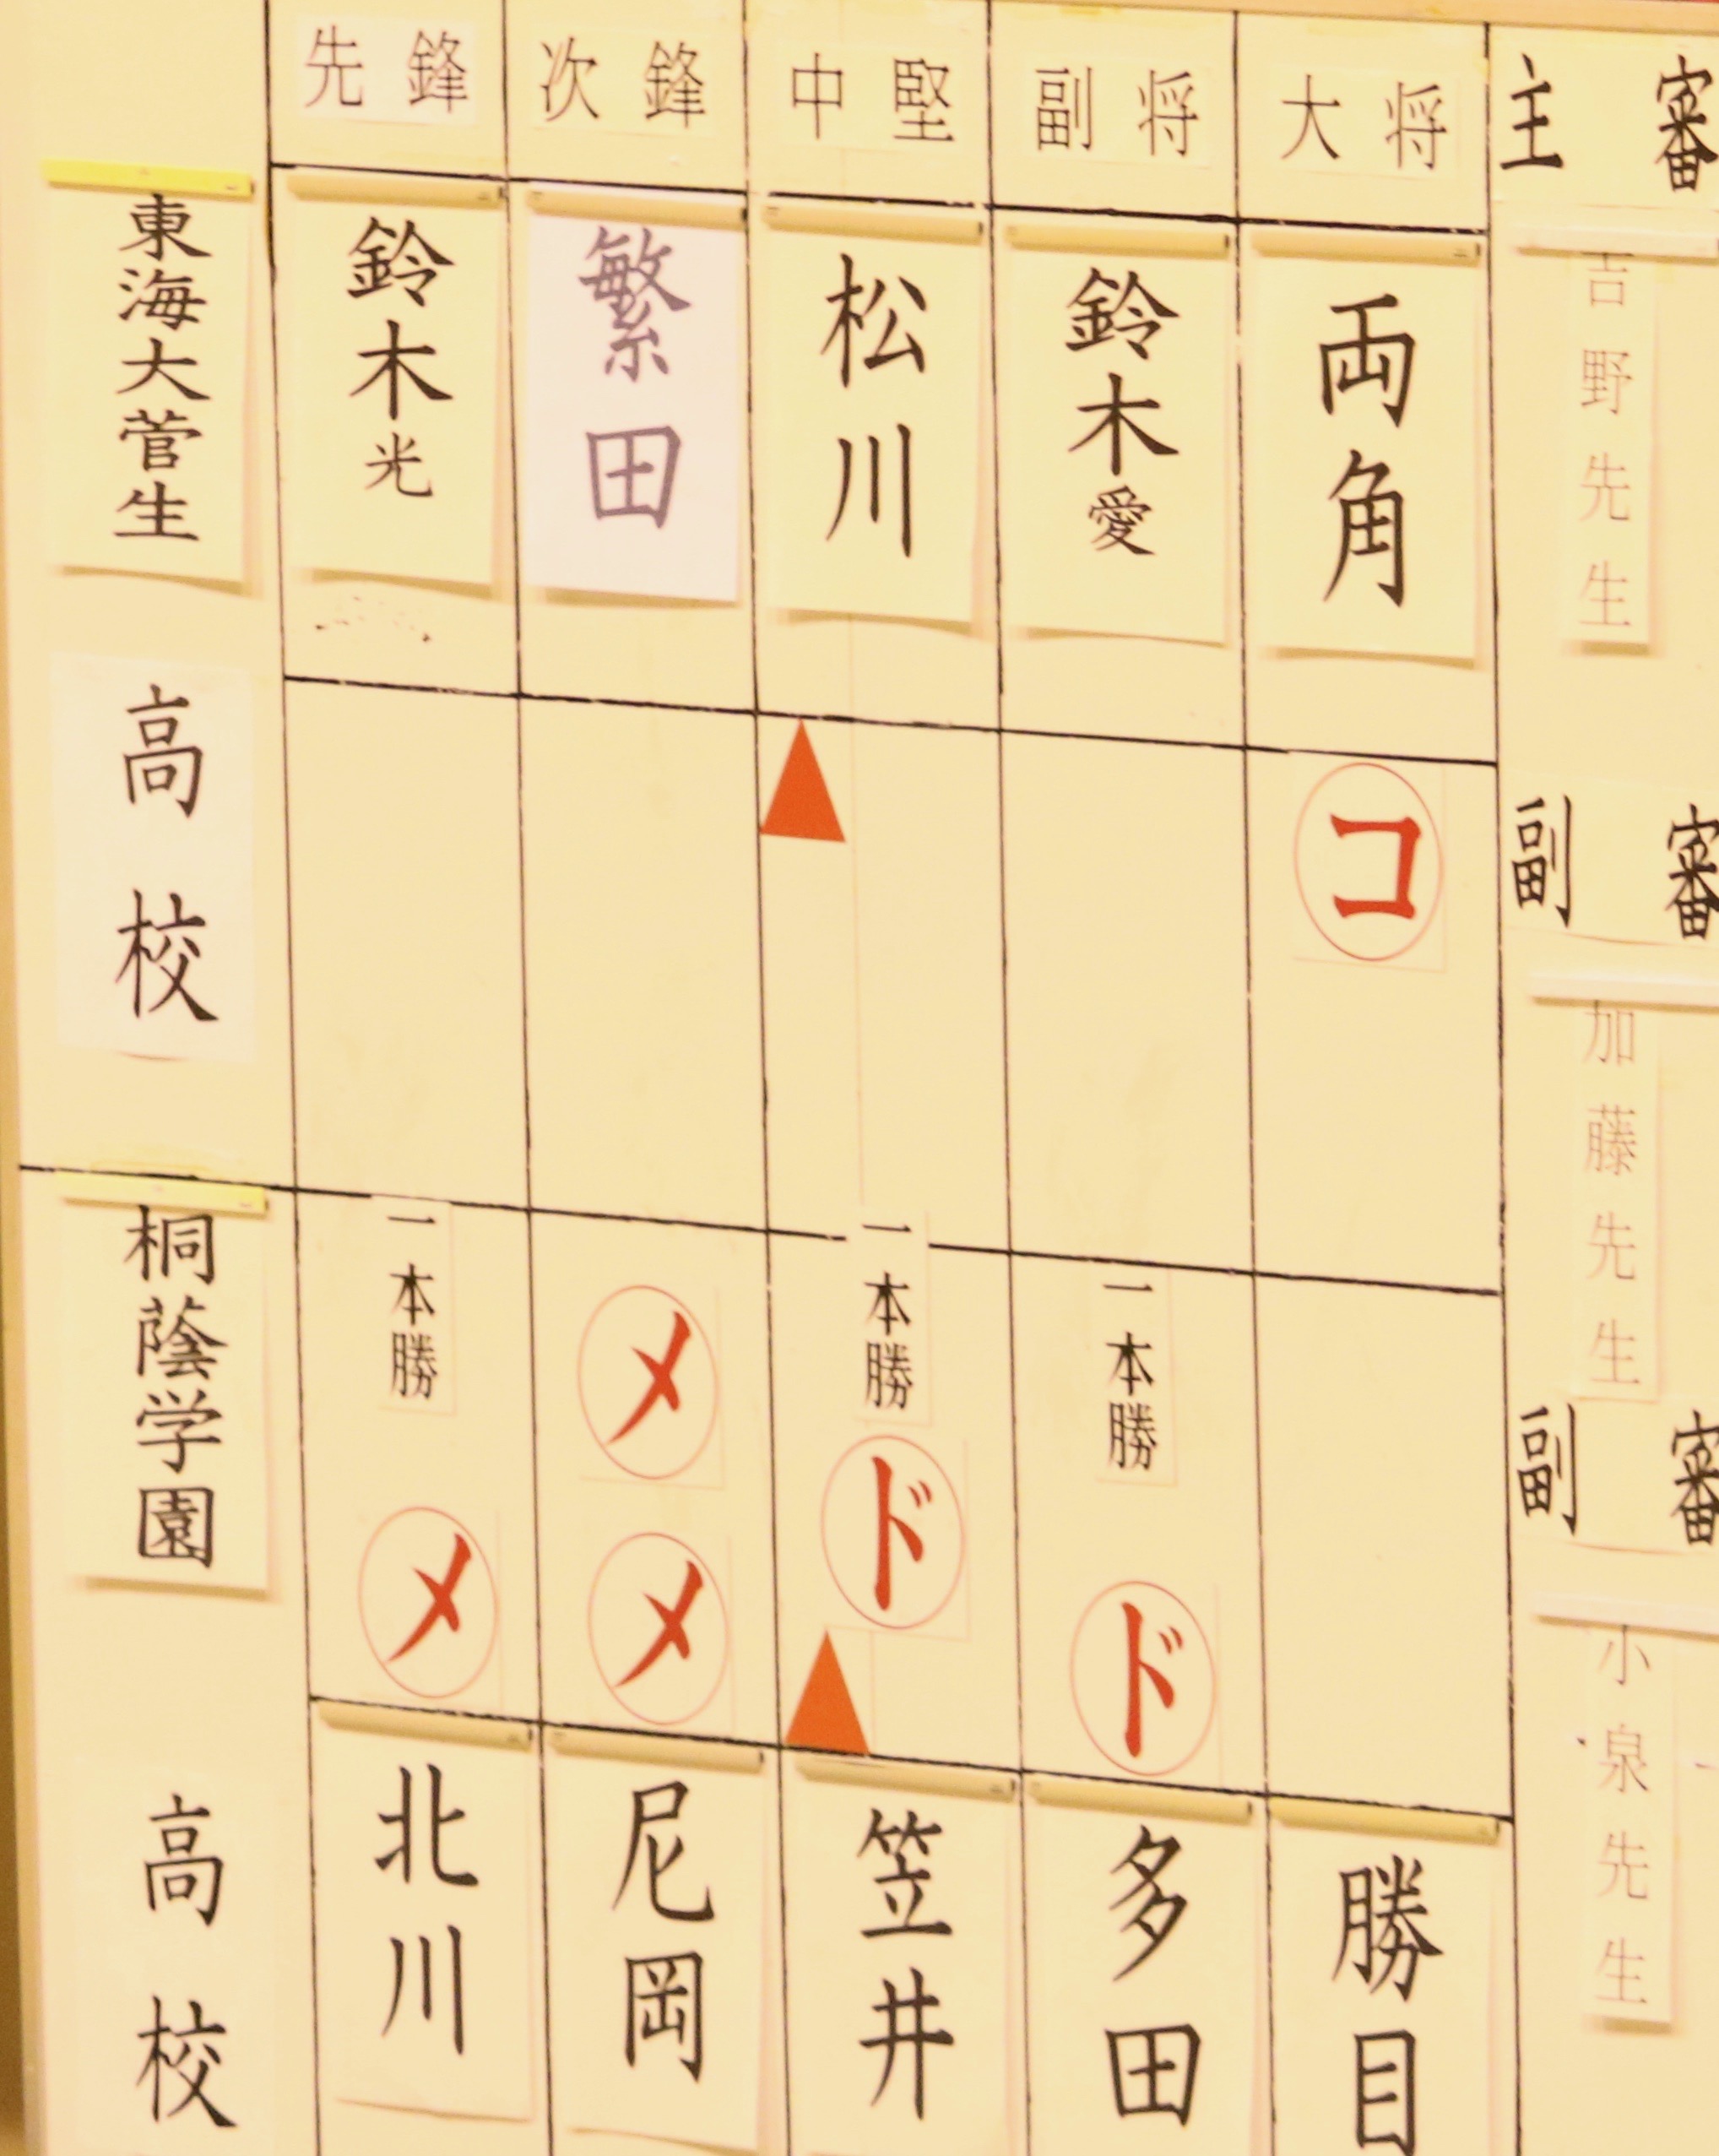 先鋒
次鋒
中堅
副将
大将
主審
東海大菅生
高校
鈴木光
繁田
松川
鈴木愛
両角
吉野先生
コ
副審
加藤先生
桐蔭学園
高校
一本勝
メ
メ
メ
一本勝
ド
一本勝
ド
副審
小泉先生
北川
尼岡
笠井
多田
勝目